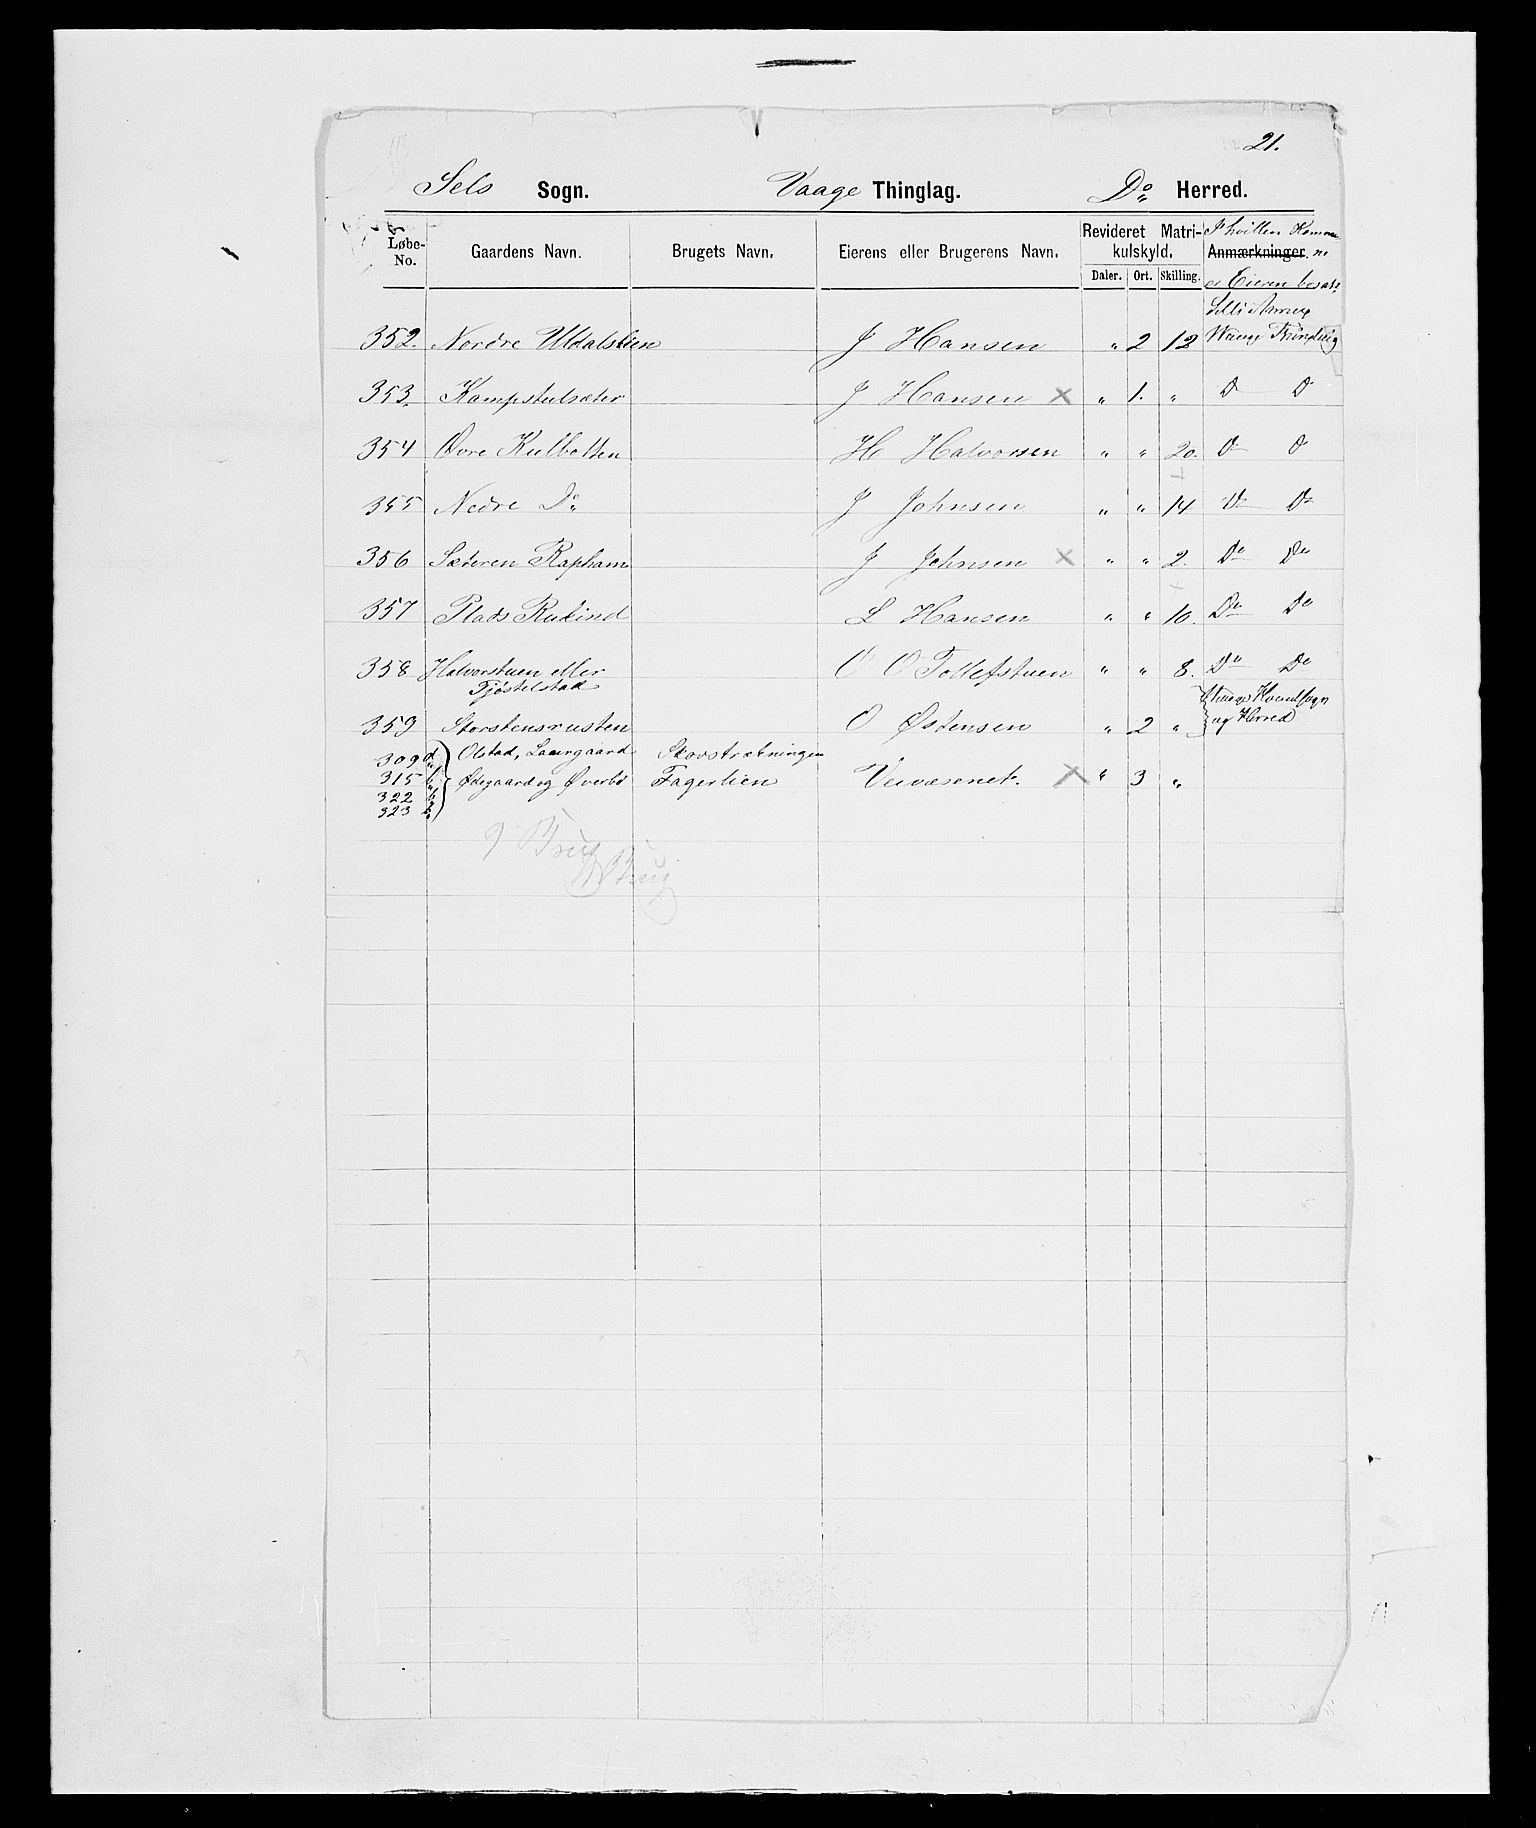 21.
Sels Sogn. Vaage Thinglag. Do Herred.
Løbe-No. Gaardens Navn. Brugets Navn. Eierens eller Brugerens Navn. Revideret Matrikulskyld. Daler. Ort. Skilling. Anmærkninger. I hvilken Kommune er Eieren bosat.
Sells Annex
352. Nordre Uldalslien J Hansen " 2 12 Waage Thinglag
353. Kampstulsæter J Hansen × " 1. " D D
354 Øvre Kulbotten H Halvorsen " " 20. D D
355 Nedre Do J Johnsen " " 14 Do Do
356 Sæteren Rapham J Johnsen × " " 2. Do Do
357 Plads Rusind L Hansen " " 10. Do Do
358 Halvorstuen eller O O Tollefstuen " " 8. Do Do
Tjøstelstad
Vaage Hovedsogn
359 Storstensrusten O Østensen " 2 " og Herred
309 d Olstad, Laurgaard Skovstrækningen
315 b Ødegaard og Øverbø Fagerlien Veivæsenet. × " 3 "
322 b
323 b
9 Brug
Brug